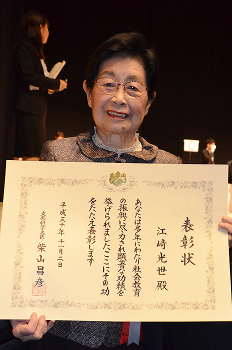 表彰状
江﨑光世殿
あなたは多年にわたり社会教育
の振興に尽力され顕著な功績を
挙げられましたここにその功
をたたえ表彰します
平成三十年十一月二日
文部科学大臣 柴山昌彦